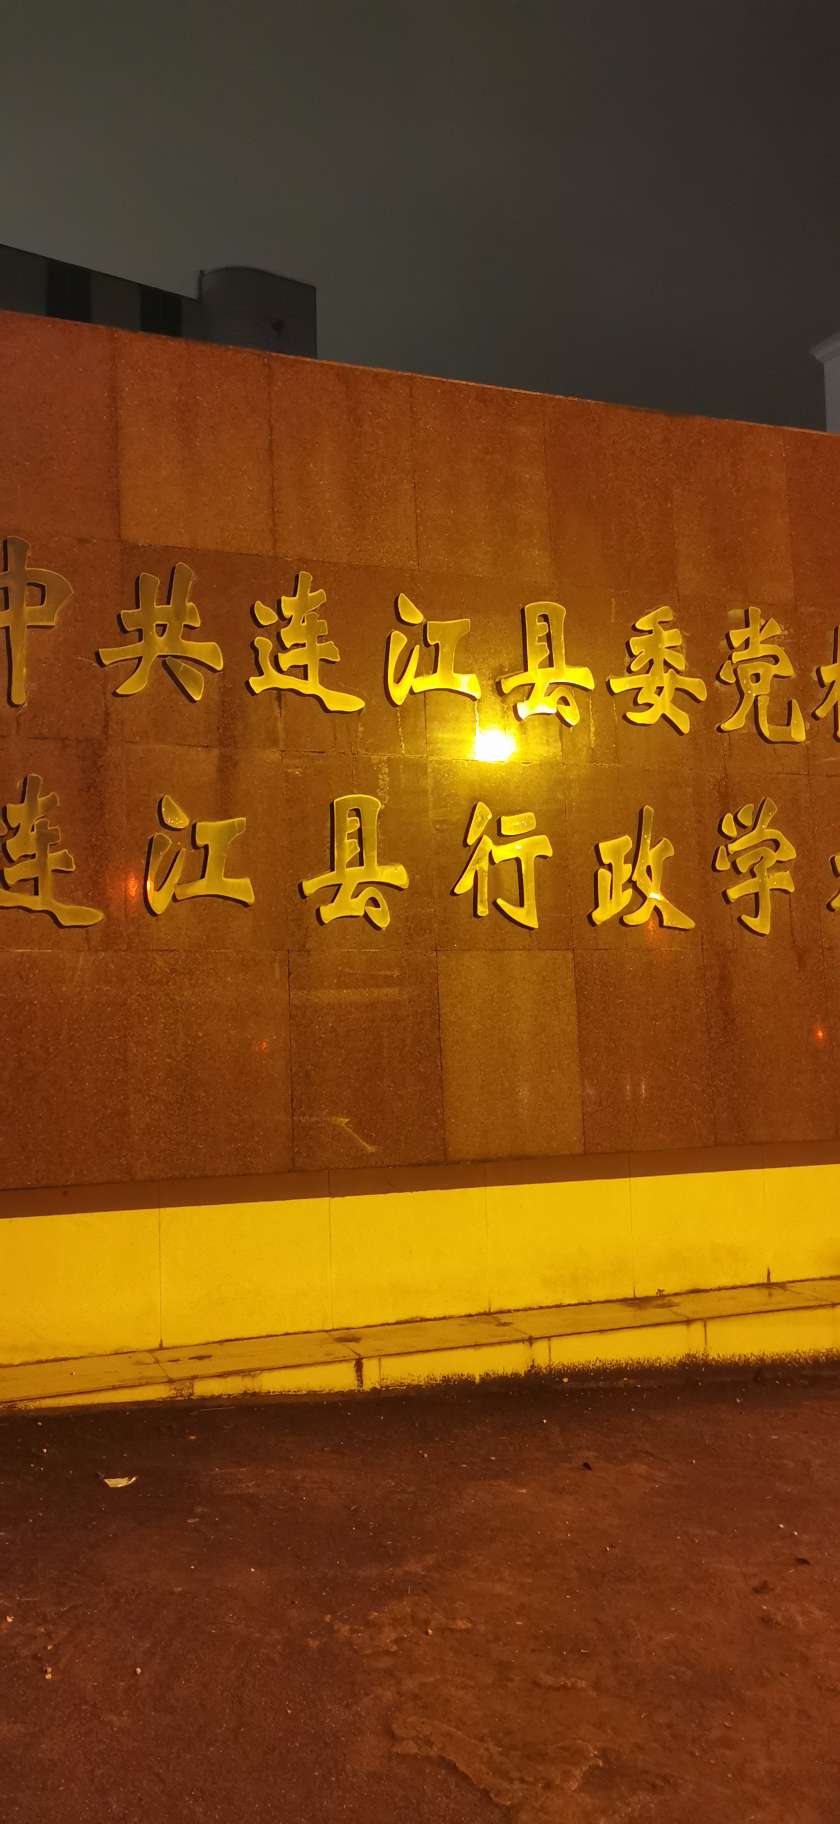 中共连江县委党校
连江县行政学校